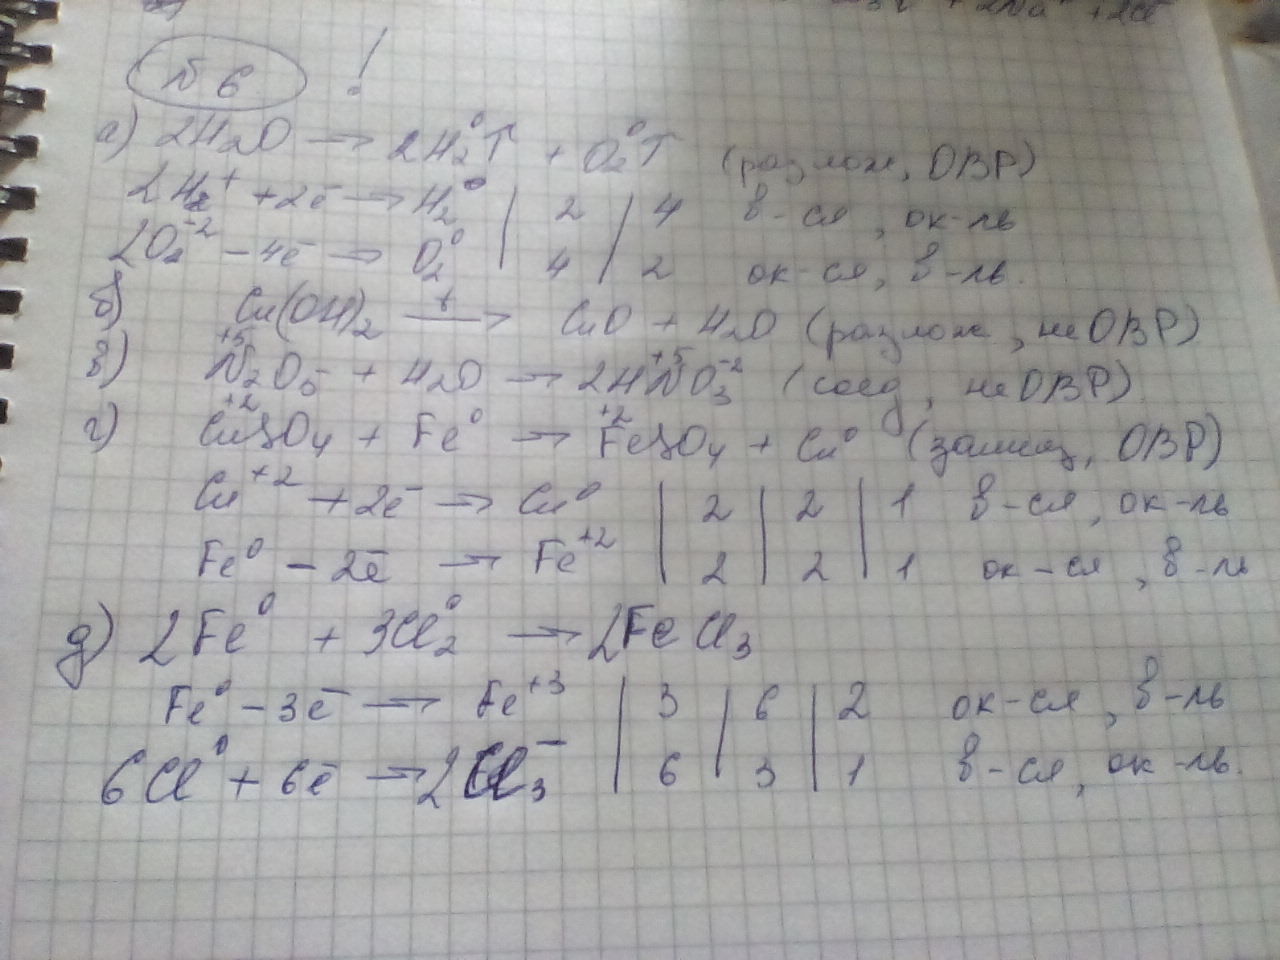 + 2Na⁺ + 2Cl⁻
№ 6 !
а) 2H₂O → 2H₂⁰↑ + O₂⁰↑ (разлож, ОВР)
2H₂⁺ + 2ē → H₂⁰ | 2 | 4 в-ся, ок-ль
2O₂⁻² - 4ē → O₂⁰ | 4 | 2 ок-ся, в-ль.
б) Cu(OH)₂ →ᵗ CuO + H₂O (разлож, не ОВР)
в) N₂⁺⁵O₅ + H₂O → 2HN⁺⁵O₃⁻² (соед, не ОВР)
г) Cu⁺²SO₄ + Fe⁰ → Fe⁺²SO₄ + Cu⁰ (замещ, ОВР)
Cu⁺² + 2ē → Cu⁰ | 2 | 2 | 1 в-ся, ок-ль
Fe⁰ - 2ē → Fe⁺² | 2 | 2 | 1 ок-ся, в-ль
д) 2Fe⁰ + 3Cl₂⁰ → 2FeCl₃
Fe⁰ - 3ē → Fe⁺³ | 3 | 6 | 2 ок-ся, в-ль
6Cl⁰ + 6ē → 2Cl₃⁻ | 6 | 3 | 1 в-ся, ок-ль.